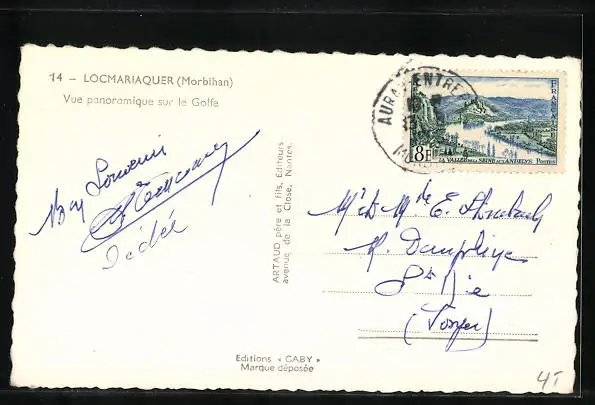 14 - LOCMARIAQUER (Morbihan)
Vue panoramique sur le Golfe
Bon Souvenir
Dédée
ARTAUD père et fils, Editeurs
avenue de la Close, Nantes.
Editions « GABY »
Marque déposée
FRANCE
8F
LA VALLÉE DE LA SEINE AUX ANDELYS
Postes
AURAY ENTREP
M. et Mme E.
R. Dauphine
St Dié
(Vosges)
4T